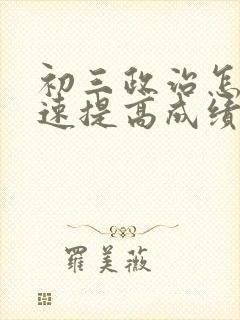 初三政治怎
速提高成绩
罗美薇